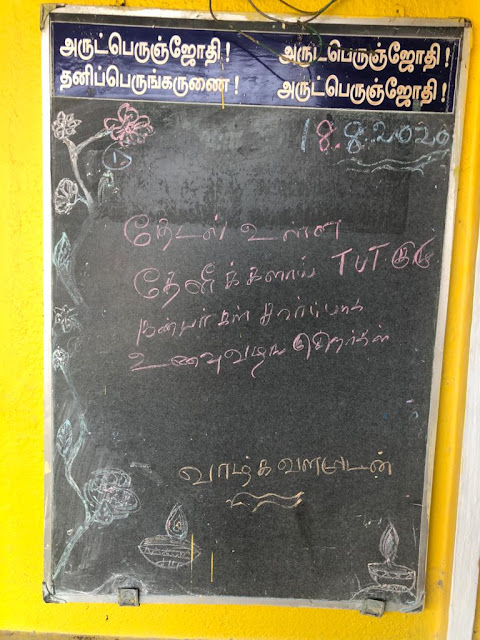 அருட்பெருஞ்ஜோதி ! அருட்பெருஞ்ஜோதி !
தனிப்பெருங்கருணை ! அருட்பெருஞ்ஜோதி !
18.8.2020
தேடல் உள்ள
தேனீக்களாய் TUT குழு
நன்பர்கள் சார்பாக
உணவு வழங்குகிறார்கள்
வாழ்க வளமுடன்